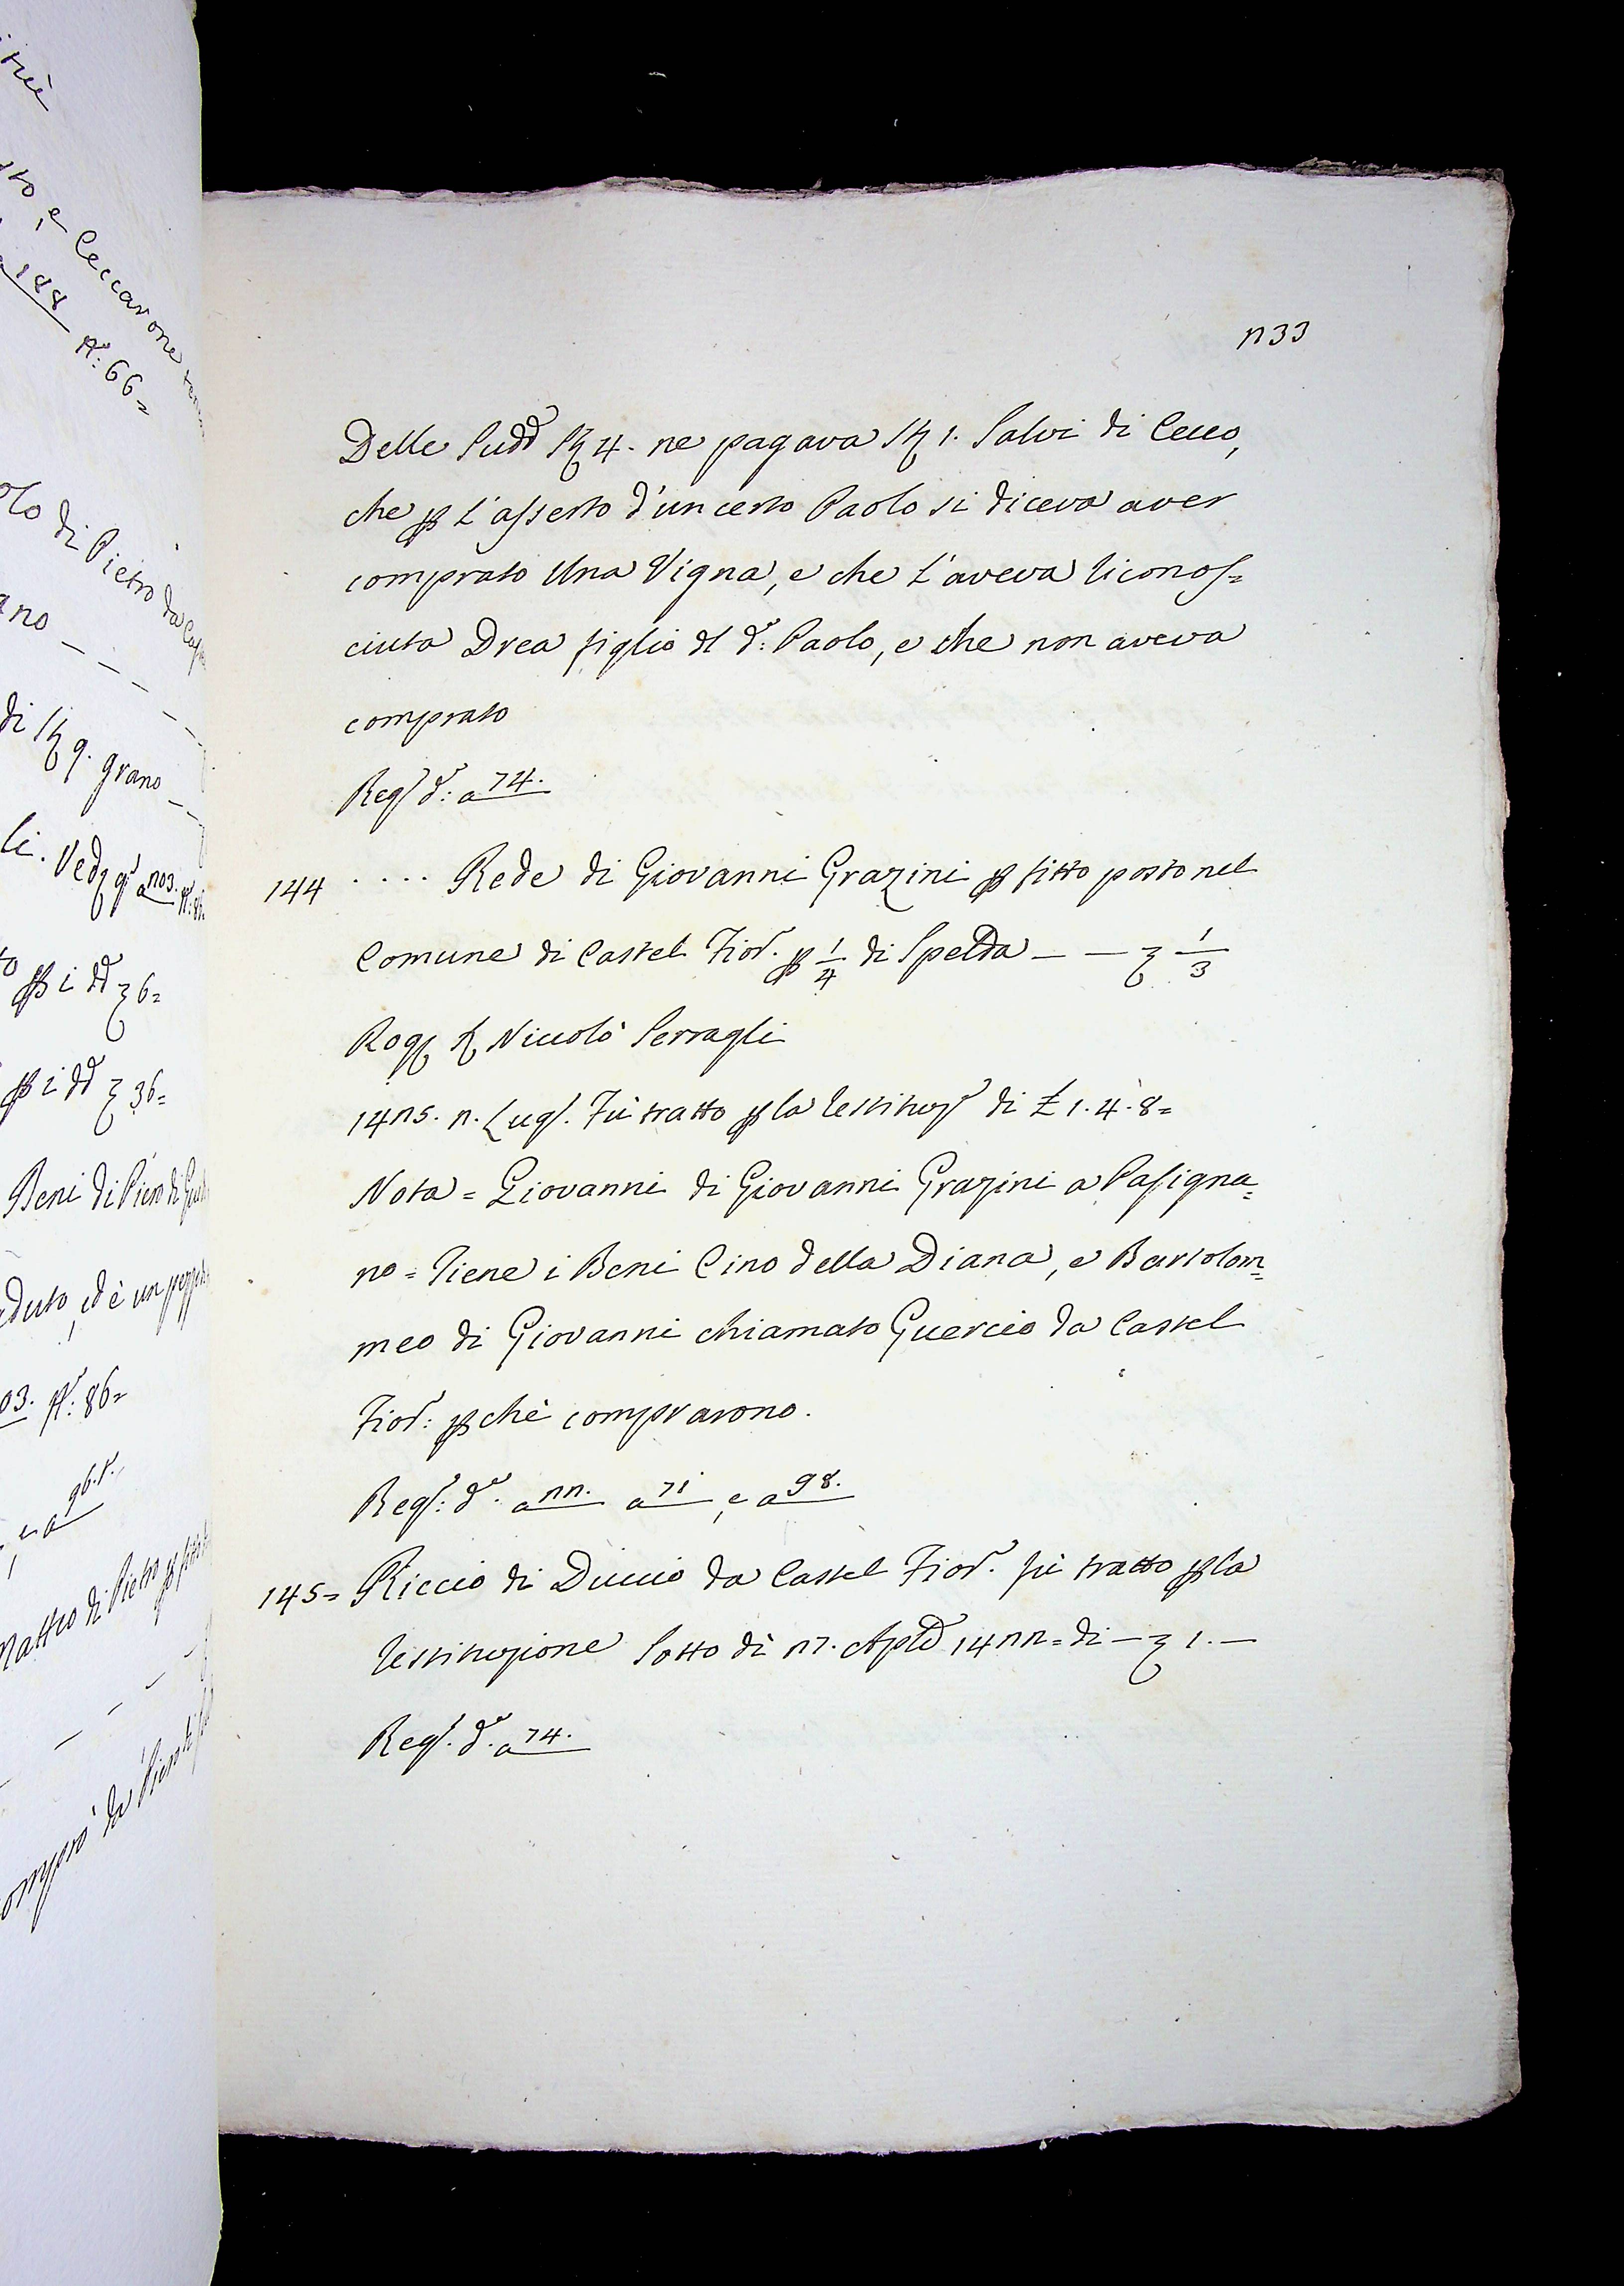 e Ceccarone
188 N.º: 66=
di Pietro da
di St 9. grano
li. Ved. q.º a 203.
p i dd. 6=
p i dd. 36=
Beni di Piero di
ed è un
03. N.º: 86=
e a 96.t.
Matteo di Pietro
comprò da Piero
233
Delle Sudd.º St 4. ne pagava St 1. Salvi di Cecco,
che p l'asserto d'un certo Paolo si diceva aver
comprato Una Vigna, e che l'aveva riconos=
ciuta Drea figlio dl d.º: Paolo, e che non aveva
comprato
Reg.º d.º: a 74.
144 .... Rede di Giovanni Grazini p fitto posto nel
Comune di Castel Fior.º p 1/4 di Spelda — — 1/3
Rog. Niccolò Serragli
1425. 2. Lugl. Fù tratto p la restituz.º di £ 1. 4. 8=
Nota = Giovanni di Giovanni Grazini a Pasigna=
no = Tiene i Beni Cino della Diana, e Bartolom=
meo di Giovanni chiamato Guercio da Castel
Fior.º: p chè comprarono.
Reg.º: d.º. a 22. a 71, e a 98.
145= Riccio di Duccio da Castel Fior.º. fù tratto p la
restituzione sotto dì 27. Aple 1422= di — 1. —
Reg.º. d.º. a 74.